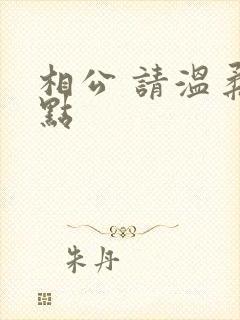 相公 請溫柔
點
朱丹